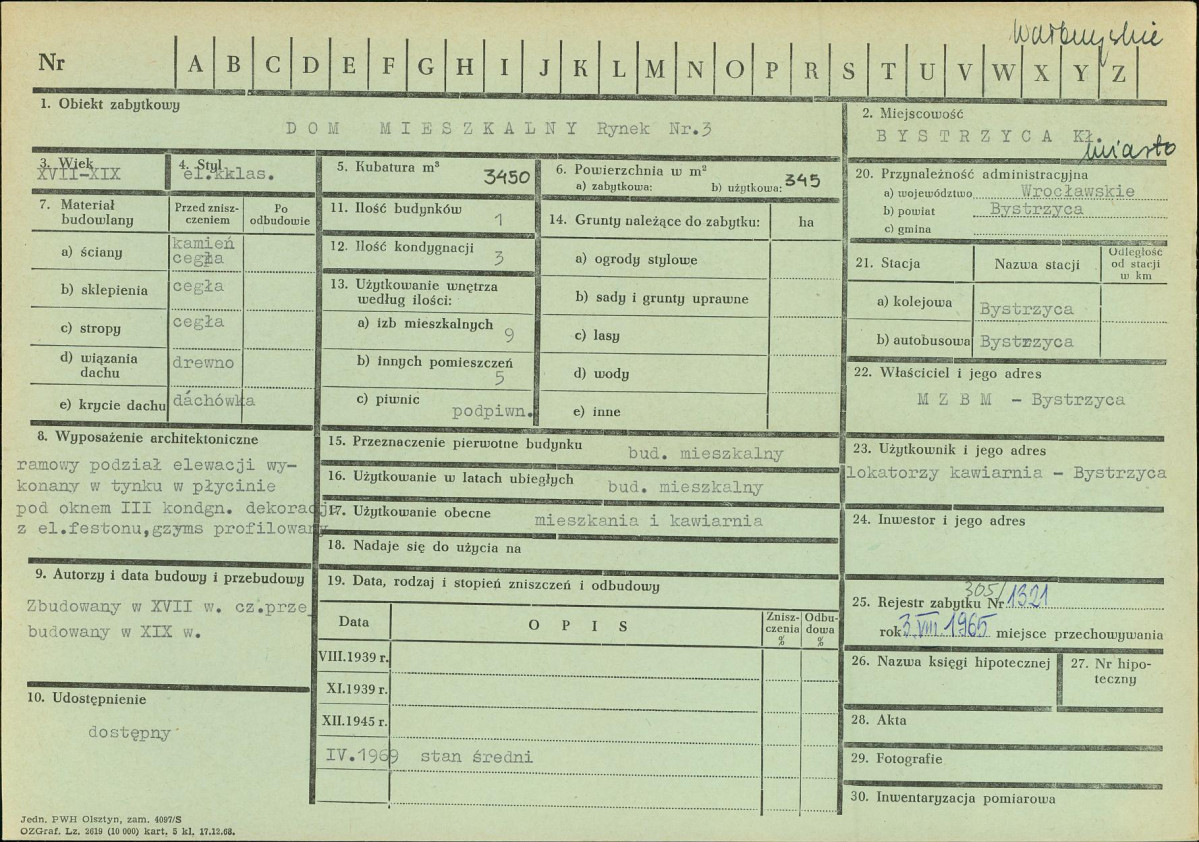 wałbrzyskie
Nr A B C D E F G H I J K L M N O P R S T U V W X Y Z
1. Obiekt zabytkowy
DOM MIESZKALNY Rynek Nr.3
2. Miejscowość
BYSTRZYCA Kł.
miasto
3. Wiek
XVII-XIX
4. Styl
el.kklas.
5. Kubatura m³
3450
6. Powierzchnia w m²
a) zabytkowa: b) użytkowa: 345
20. Przynależność administracyjna
a) województwo Wrocławskie
b) powiat Bystrzyca
c) gmina
7. Materiał budowlany
Przed znisz-
czeniem
Po
odbudowie
a) ściany kamień
cegła
b) sklepienia cegła
c) stropy cegła
d) wiązania
dachu drewno
e) krycie dachu dachówka
11. Ilość budynków
1
12. Ilość kondygnacji
3
13. Użytkowanie wnętrza
według ilości:
a) izb mieszkalnych
9
b) innych pomieszczeń
5
c) piwnic
podpiwn.
14. Grunty należące do zabytku: ha
a) ogrody stylowe
b) sady i grunty uprawne
c) lasy
d) wody
e) inne
21. Stacja Nazwa stacji
Odległość
od stacji
w km
a) kolejowa Bystrzyca
b) autobusowa Bystrzyca
22. Właściciel i jego adres
M Z B M - Bystrzyca
8. Wyposażenie architektoniczne
ramowy podział elewacji wy-
konany w tynku w płycinie
pod oknem III kondgn. dekoracje
z el.festonu,gzyms profilowany
15. Przeznaczenie pierwotne budynku
bud. mieszkalny
16. Użytkowanie w latach ubiegłych
bud. mieszkalny
17. Użytkowanie obecne
mieszkania i kawiarnia
18. Nadaje się do użycia na
23. Użytkownik i jego adres
lokatorzy kawiarnia - Bystrzyca
24. Inwestor i jego adres
9. Autorzy i data budowy i przebudowy
Zbudowany w XVII w. cz.prze
budowany w XIX w.
19. Data, rodzaj i stopień zniszczeń i odbudowy
Data OPIS
Znisz-
czenia
%
Odbu-
dowa
%
VIII.1939 r.
XI.1939 r.
XII.1945 r.
IV.1969 stan średni
305/
25. Rejestr zabytku Nr 1321
rok 3.VIII.1965 miejsce przechowywania
26. Nazwa księgi hipotecznej
27. Nr hipo-
teczny
10. Udostępnienie
dostępny
28. Akta
29. Fotografie
30. Inwentaryzacja pomiarowa
Jedn. PWH Olsztyn, zam. 4097/S
OZGraf. Lz. 2619 (10 000) kart, 5 kl, 17.12.68.